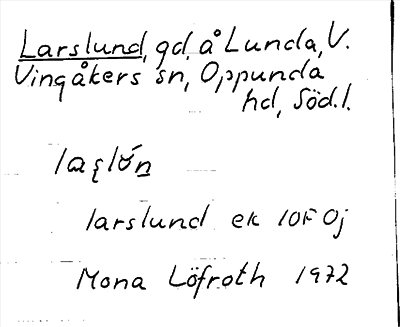 Larslund, gd, å Lunda, V.
Vingåkers sn, Oppunda
hd, Söd.l.
larslund ek 10F 0j
Mona Löfroth 1972